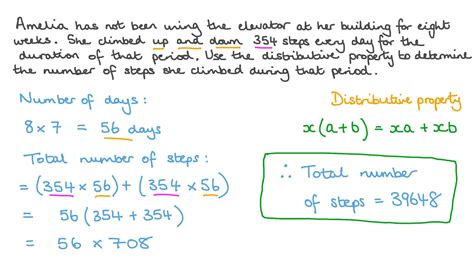 Amelia has not been using the elevator at her building for eight
weeks. She climbed up and down 354 steps every day for the
duration of that period. Use the distributive property to determine
the number of steps she climbed during that period.
Number of days:
8 x 7 = 56 days
Total number of steps:
= (354 x 56) + (354 x 56)
= 56 (354 + 354)
= 56 x 708
Distributive property
x(a+b) = xa + xb
∴ Total number
of steps = 39648